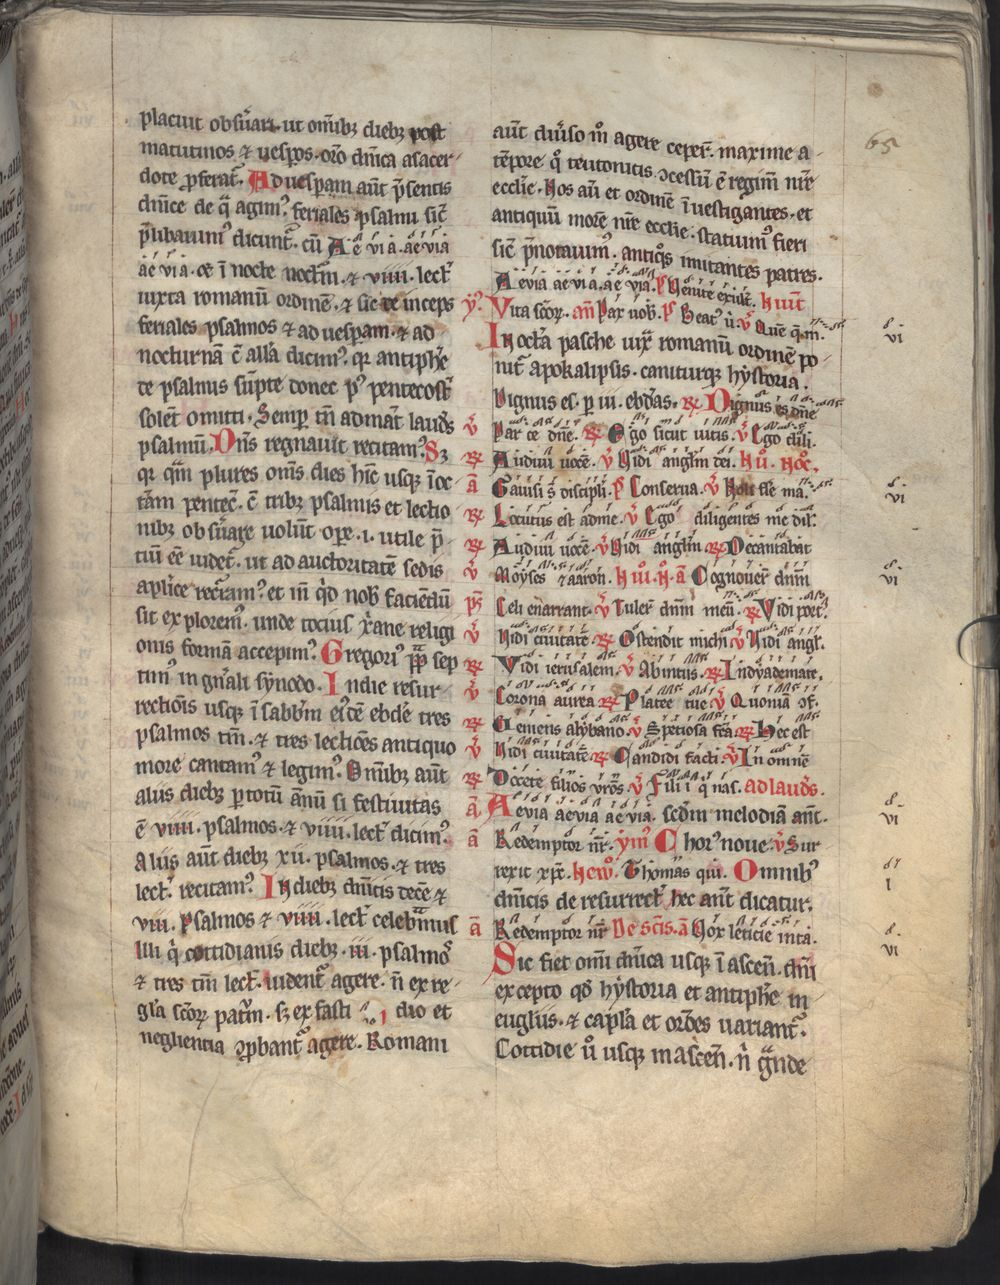 placuit obs̄uari. ut om̄ibꝫ diebꝫ post
matutinos ⁊ uesp̄os. or̄o dn̄ica a sacer-
dote ꝓferat᷑. Ad uesꝑam aūt p̄sentis
dn̄ice de q̄ agim᷒. feriales psalmi sic̄
p̄libauim᷒ dicunt᷑. cū Aeuia. aeuia
aeuia. ī nocte noct̄m. ⁊ viiii. lect᷑
iuxta romanū ordinē. ⁊ sic deinceps
feriales psalmos ⁊ ad uesꝑam. ⁊ ad
nocturnā
de psalmis sūpte donec p᷒ pentecost᷑
solēt omitti. Semꝑ tn̄ ad mat᷑ laud᷑
psalmū. Dn̄s regnauit recitam᷒. Sꝫ
qr qm̄ plures om̄s dies hīc usqꝫ ī oc
tām pentec̄. ē tribꝫ psalmis et lectio
nibꝫ obs̄uare uolūt oꝑe. i. utile p̄-
tiū eē uidet᷑. ut ad auctoritatē sedis
aplice recīram᷒ et in q̄d nob̄ faciēdū
sit explorem᷒. unde tocius xp̄ane religi
onis formā accepim᷒. Gregori᷒ pp̄ sep
tim᷒ in gn̄ali synodo. In die resur-
rectiōis usqꝫ ī sabb̄m ei᷒dē ebdē tres
psalmos tm̄. ⁊ tres lectiōes antiquo
more cantam᷒ ⁊ legim᷒. Om̄ibꝫ aūt
aliis diebꝫ ꝑ totū annū si festiuitas
ē viiii. psalmos. ⁊ viiii. lect᷑ dicim᷒.
Aliis aūt diebꝫ xii. psalmos. ⁊ tres
lect᷑ recitam᷒. In diebꝫ dn̄icis decē ⁊
viii. psalmos ⁊ viiii. lect᷑ celebram᷒
Illi q̇ cottidianis diebꝫ. iii. psalmos
⁊ tres tm̄ lect᷑. uident᷑ agere. n̄ ex re-
gl̄a sc̄oꝝ patr̄m. sꝫ ex fasti dio et
neglientia ꝓbant᷑ agere. Romani
65
aūt diu̇so m̊ agere ceper̄. maxime a
tēpore q̊ teutonicis ꝯcessū ē regim̄ nr̄e
ecclīe. Nos aū et ordinē īuestigantes. et
antiquū morē nr̄e ecclīe. statuim᷒ fieri
sic̄ p̄notauim᷒. antiq̊s imitantes patres.
Aeuia aeuia. aeuia. Venite exult᷑.
Vita sc̄oꝝ. an̄ Pax uob̄. Beat᷒ u̇.
vi
In octā pasche iux̄ romanū ordinē po
nit᷑ apokalipsis. caniturqꝫ hystoria.
Dignus es. ꝑ iii. ebd̄as. ℟ Dignus es dn̄e
℣ Parce dn̄e. ℟ Ego sicut uitis. ℣ Ego dili.
℟ Audiui uocē. ℣ Vidi angl̄m dei.
a Gauisi s̄ discipl̄i. Conserua. ℣ Noli
vi
℟ Locutus est ad me. ℣ Ego diligentes me dil.
℟ Audiui uocē. ℣ Vidi angl̄m ℟ Decantabat
℣ Moyses ⁊ aaron. a Cognouer̄ dn̄m
vi
Celi enarrant. ℣ Tuler̄ dn̄m meū. ℟ Vidi port᷑
℣ Vidi ciuitatē ℟ Ostendit michi ℣ Vidi angl̄.
℟ Vidi ierusalem. ℣ Ab intus. ℟ In dyademate.
℣ Corona aurea ℟ Platee tue ℣ Quoniā ꝯf.
℟ Gemens albano. ℣ Speciosa fc̄a ℟ Hec est
℣ Vidi ciuitatē ℟ Candidi facti ℣ In omnē
℟ Docete filios uros. ℣ Filii i q̊ nas. ad laud᷑s.
a Aeuia aeuia aeuia. sed̄m melodiā ant̄.
vi
a Redemptor nr̄. ym᷒ Chor᷒ noue ℣ Sur
rexit xp̄c. Thomas qui. Omnib᷒
i
dn̄icis de resurrect᷑ hec ant̄ dicatur.
a Redemptor nr̄ De sc̄is. a Vox leticie
vi
Sic fiet om̄i dn̄ica usqꝫ ī ascen̄. dn̄i
excepto qd̄ hystoria et antiphe in
euglīis. ⁊ capl̄a et or̄oes uariant᷑.
Cottidie u̇ usqꝫ in ascen̄. n̄ ḡnde